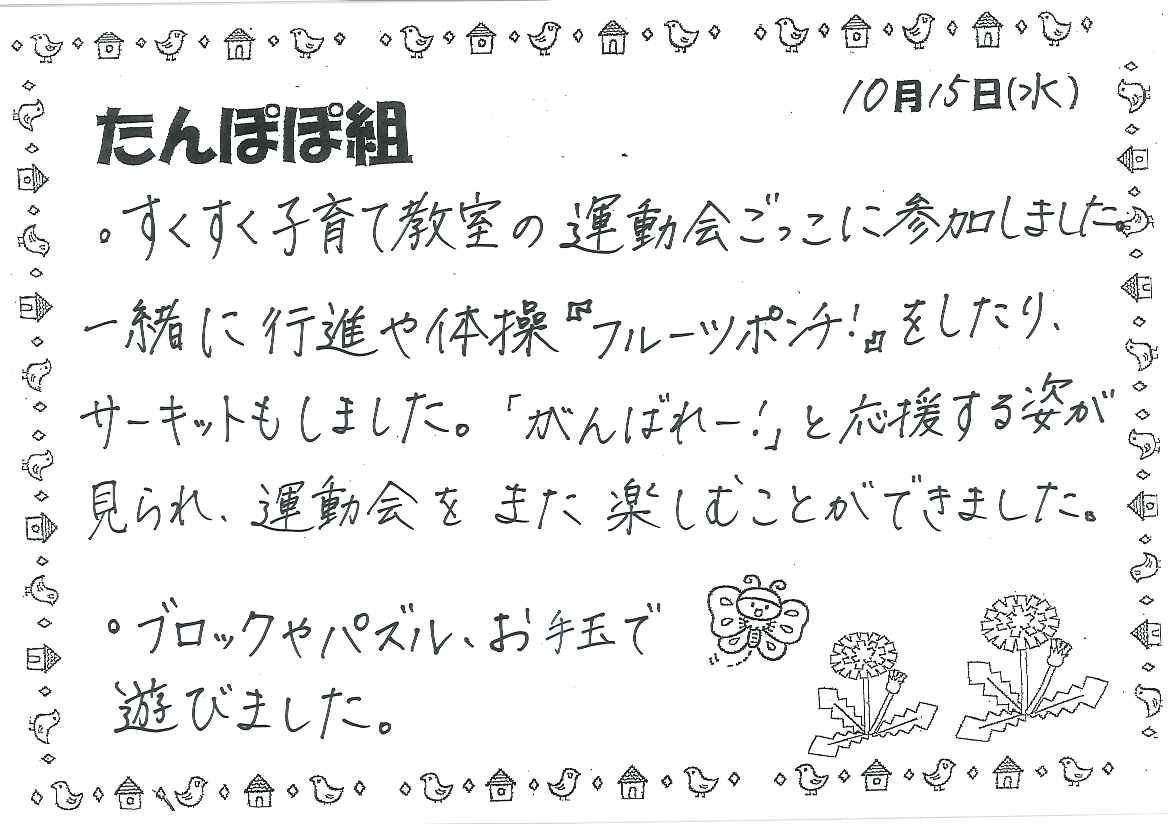 10月15日(水)
たんぽぽ組
。すくすく子育て教室の運動会ごっこに参加しました。
一緒に行進や体操『フルーツポンチ!』をしたり、
サーキットもしました。「がんばれー!」と応援する姿が
見られ、運動会をまた楽しむことができました。
。ブロックやパズル、お手玉で
遊びました。